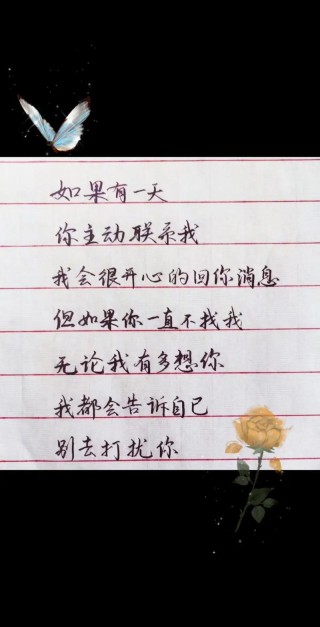 如果有一天
你主动联系我
我会很开心的回你消息
但如果你一直不找我
无论我有多想你
我都会告诉自己
别去打扰你